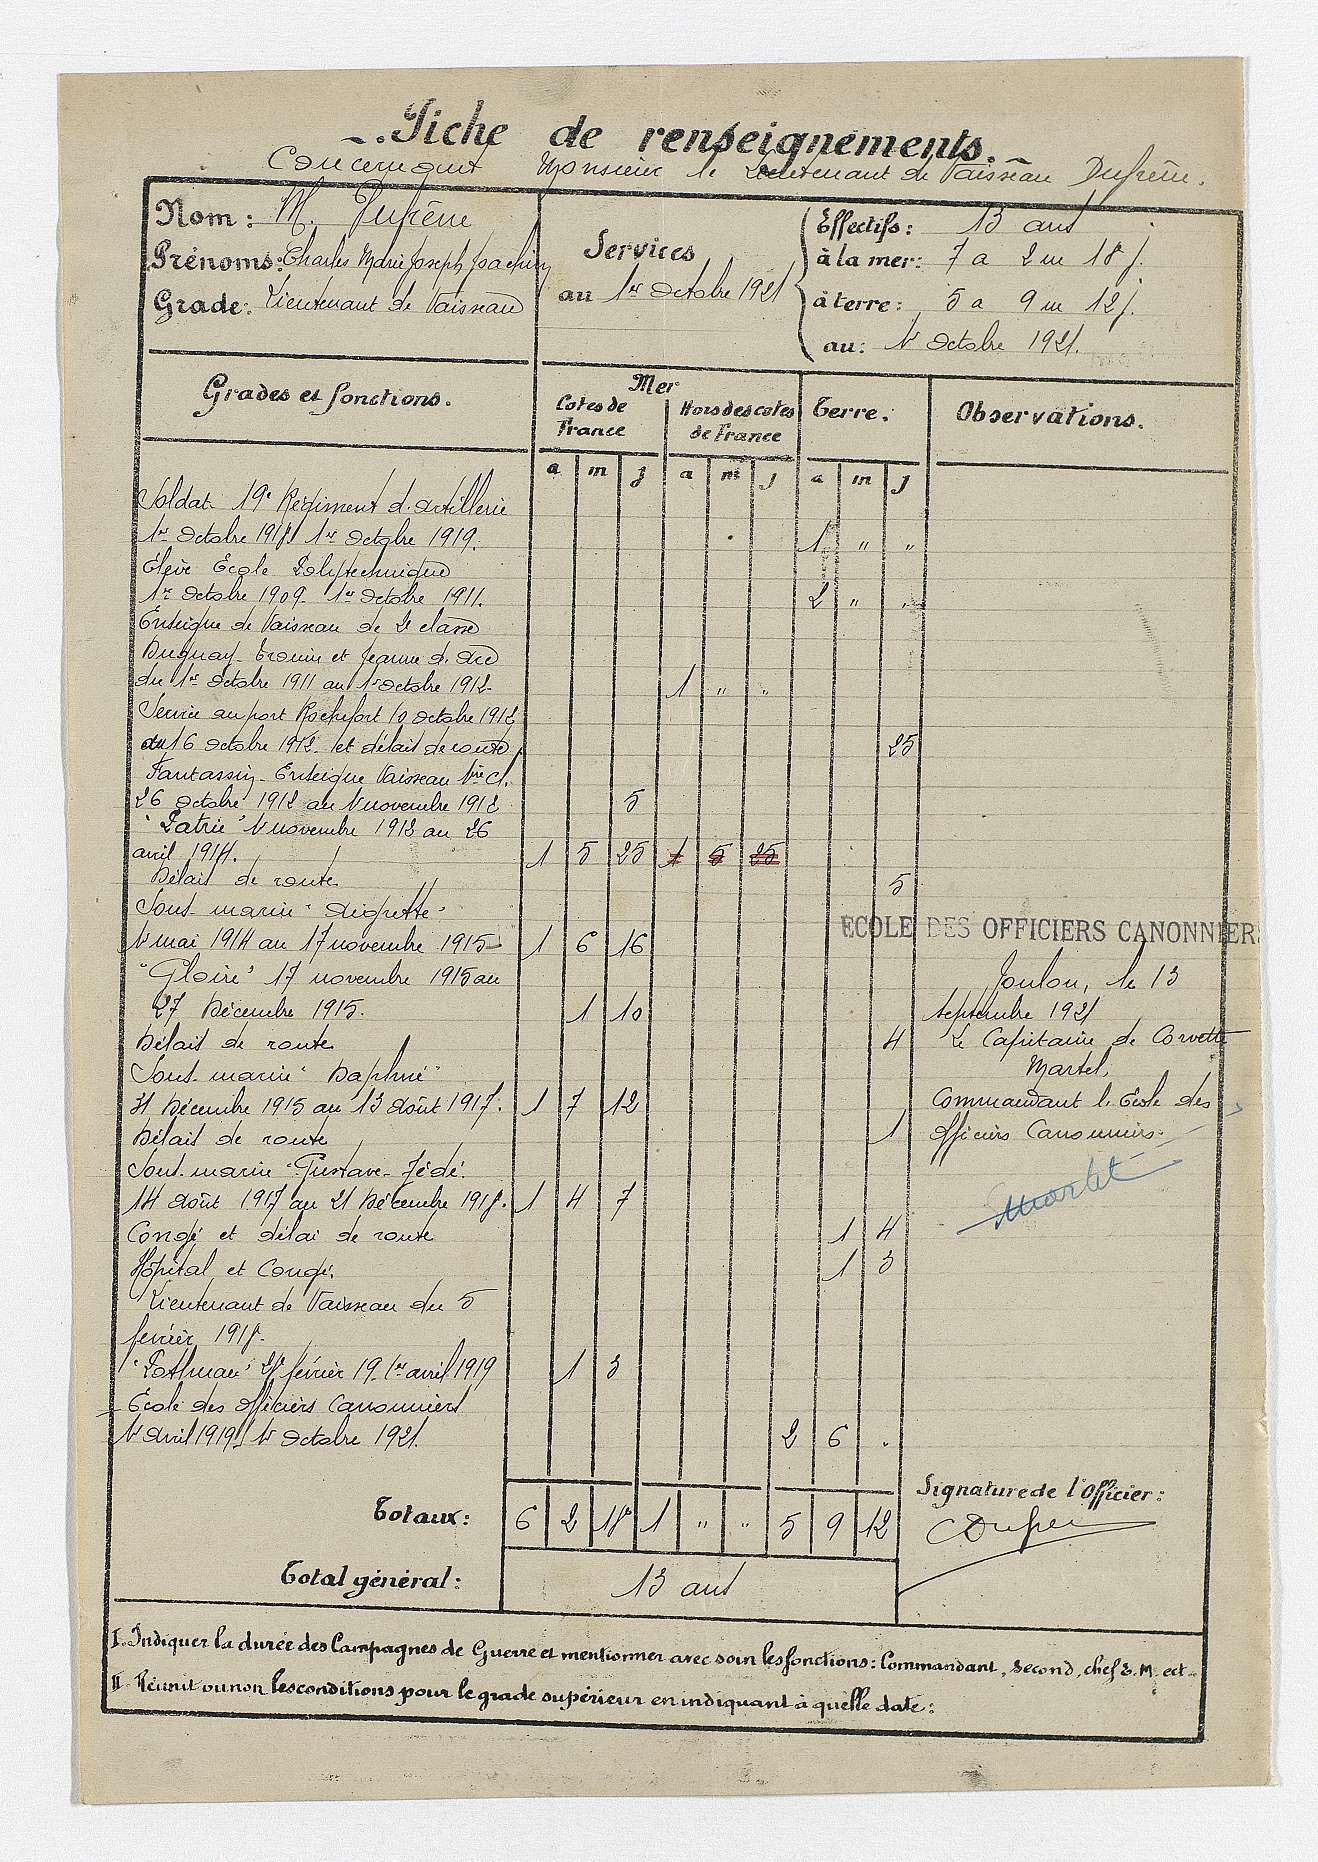 Fiche de renseignements.
Concernant Monsieur le Lieutenant de Vaisseau Dufrêne.
Nom: M. Dufrêne
Prénoms: Charles Marie Joseph Joachim
Grade: Lieutenant de Vaisseau
Services
au 1er octobre 1921
Effectifs: 13 ans
à la mer: 7 a 2 m 18 j.
à terre: 5 a 9 m 12 j.
au: 1r octobre 1921.
Grades et fonctions.
Mer
Cotes de France
Hors des cotes de France
Terre.
Observations.
a m j a m j a m j
Soldat 19e Régiment d'artillerie
1er octobre 1918 1er octobre 1919. 1 " "
Elève Ecole Polytechnique
1er octobre 1909 - 1er octobre 1911. 2 " "
Enseigne de Vaisseau de 2e classe
Duguay-Trouin et Jeanne d'Arc
du 1er octobre 1911 au 1r octobre 1912. 1 " "
Service au port Rochefort 10 octobre 1912
au 16 octobre 1912 et délait de route 25
Fantassin - Enseigne Vaisseau 1ère Cl.
26 octobre 1912 au 1r novembre 1912 5
"Patrie" 1r novembre 1912 au 26
avril 1914. 1 5 25 1 5 25
Délait de route 5
Sous-marin "Aigrette"
1r mai 1914 au 17 novembre 1915 1 6 16
"Gloire" 17 novembre 1915 au
27 Décembre 1915. 1 10
Délait de route 4
Sous-marin "Daphné"
31 Décembre 1915 au 13 août 1917. 1 7 12
Délait de route 1
Sous-marin "Gustave-Zédé"
14 août 1917 au 21 Décembre 1918. 1 4 7
Congé et délai de route 1 4
Hôpital et Congé. 1 3
Lieutenant de Vaisseau du 5
février 1918.
"Pothuau" 28 février 19. 1er avril 1919 1 3
Ecole des officiers canonniers
1r avril 1919 1r octobre 1921. 2 6 .
ECOLE DES OFFICIERS CANONNIER
Toulon, le 13
septembre 1921
Le Capitaine de Corvette
Martel,
Commandant l'Ecole des
officiers Canonniers.
Martel
Signature de l'Officier:
CDufre
Totaux: 6 2 18 1 " " 5 9 12
Total général: 13 ans
I. Indiquer la durée des Campagnes de Guerre et mentionner avec soin les fonctions: Commandant, Second, chef E.M. ect..
II. Réunit ou non les conditions pour le grade supérieur en indiquant à quelle date: